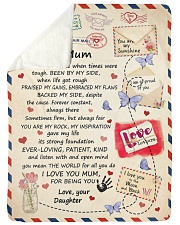 You are my
Sunshine
Mum
when times were
tough, BEEN BY MY SIDE,
when life got rough
PRAISED MY GAINS, EMBRACED MY FLAWS
BACKED MY SIDE, despite
the cause. Forever constant,
always there
Sometimes firm, but always fair
YOU ARE MY ROCK, MY INSPIRATION
gave my life
its strong foundation
EVER-LOVING, PATIENT, KIND
and listen with open mind
you mean THE WORLD for all you do
I LOVE YOU MUM,
FOR BEING YOU
Love, your
Daughter
proud of you
Love
Love you
to the
Moon and
Back